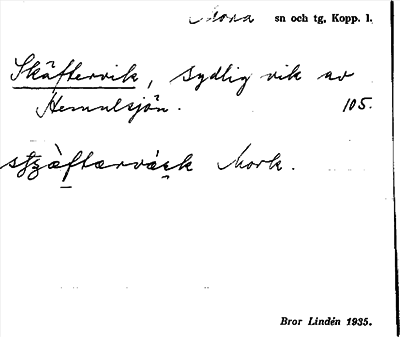 Mora sn och tg, Kopp. l.
Skäftervik, sydlig vik av
Hemulsjön. 105.
Mork.
Bror Lindén 1935.